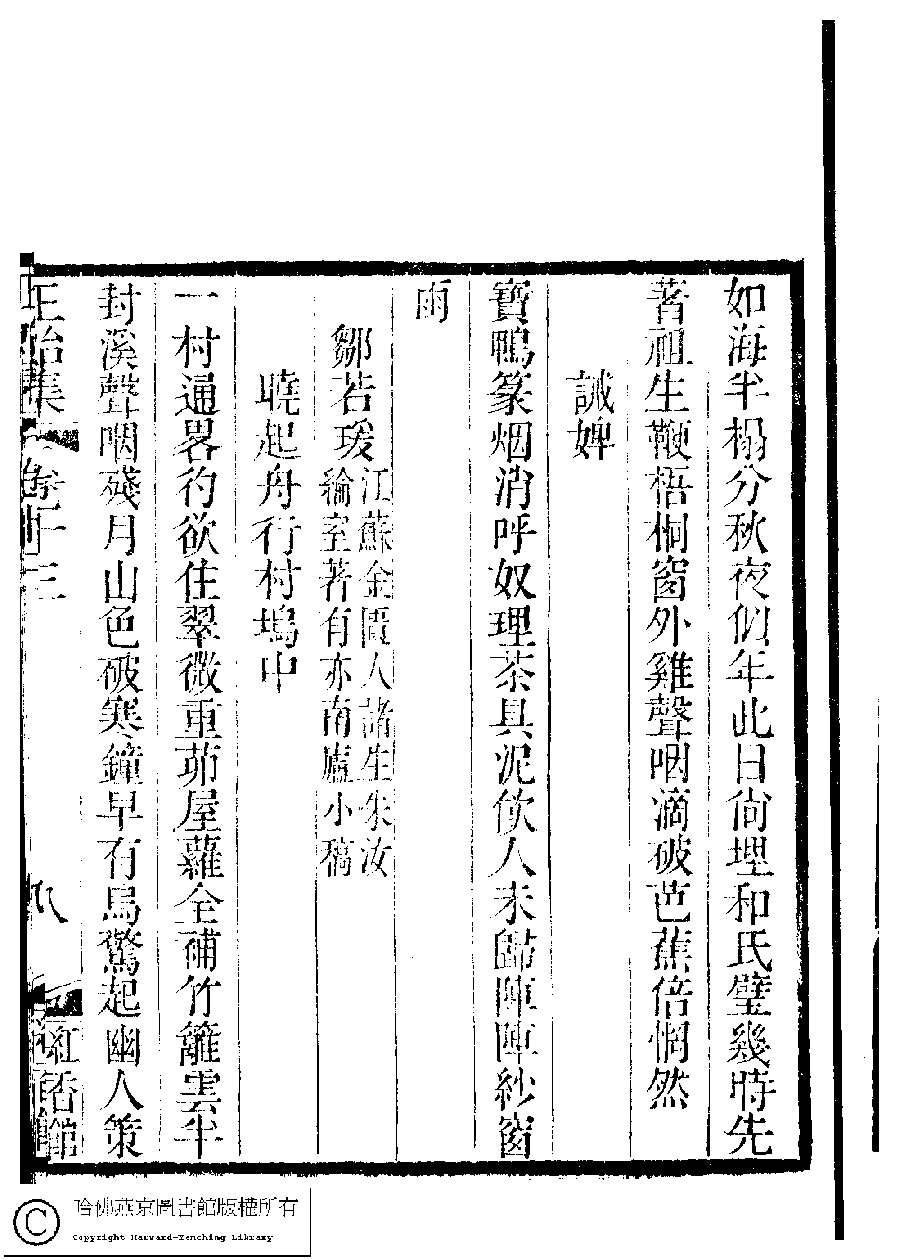 如海半榻分秋夜似年此日尙埋和氏璧幾時先
著祖生鞭梧桐窗外雞聲咽滴破芭蕉倍惘然
誡婢
寶鴨篆烟消呼奴理茶具泥飲人未歸陣陣紗窗
雨
鄒若瑗江蘇金匱人諸生朱汝
綸室著有亦南廬小稿
曉起舟行村塢中
一村通畧彴欲住翠微重茆屋蘿全補竹籬雲半
封溪聲咽殘月山色破寒鐘早有烏驚起幽人策
正始集 卷十三 八 紅香館
哈佛燕京圖書館版權所有
Copyright Harvard-Yenching Library